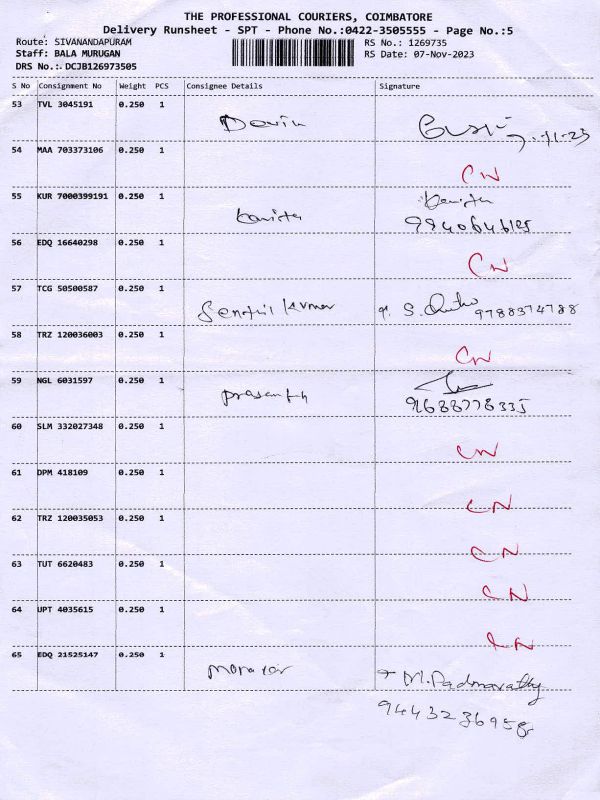 THE PROFESSIONAL COURIERS, COIMBATORE
Delivery Runsheet - SPT - Phone No.:0422-3505555 - Page No.:5
Route: SIVANANDAPURAM RS No.: 1269735
Staff: BALA MURUGAN RS Date: 07-Nov-2023
DRS No.:. DCJB126973505
S No Consignment No Weight PCS Consignee Details Signature
53 TVL 3045191 0.250 1
54 MAA 703373106 0.250 1
CN
55 KUR 7000399191 0.250 1
Kavitha
9940646125
56 EDQ 16640298 0.250 1
CN
57 TCG 50500587 0.250 1
Senthil kumar 9788374788
58 TRZ 120036003 0.250 1
CN
59 NGL 6031597 0.250 1
prasanth 9688778335
60 SLM 332027348 0.250 1
CN
61 DPM 418109 0.250 1
CN
62 TRZ 120035053 0.250 1
CN
63 TUT 6620483 0.250 1
CN
64 UPT 4035615 0.250 1
CN
65 EDQ 21525147 0.250 1
M.Padmavathy
9443236958